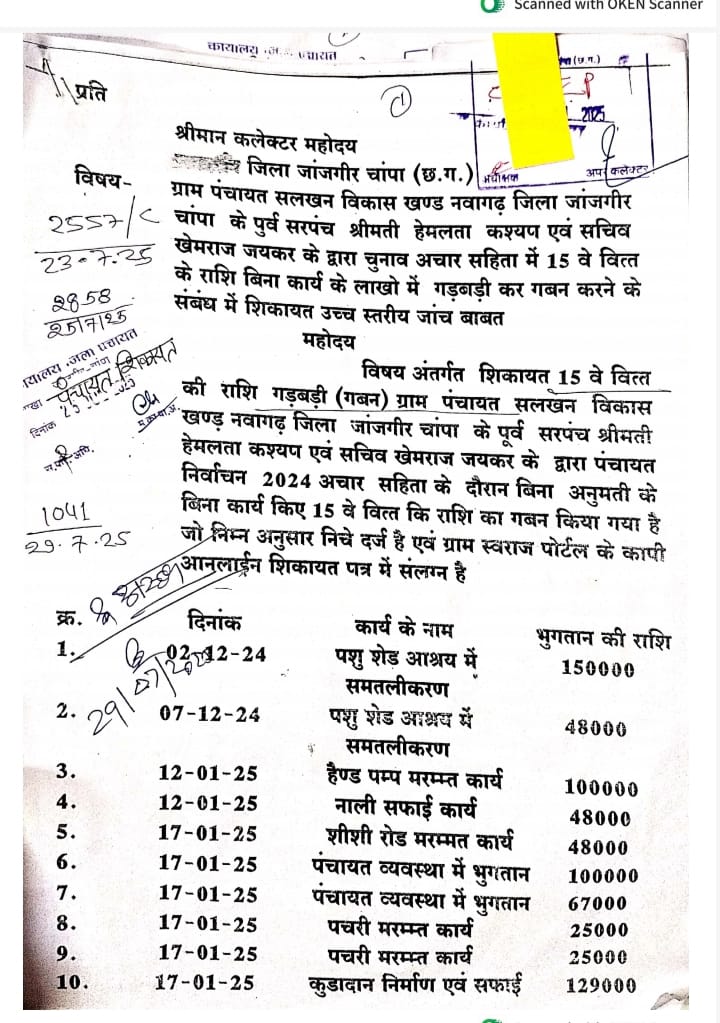 Scanned with OKEN Scanner
प्रति
श्रीमान कलेक्टर महोदय
जिला जांजगीर चांपा (छ.ग.)
अपर कलेक्टर
2025
विषय-
ग्राम पंचायत सलखन विकास खण्ड नवागढ़ जिला जांजगीर
चांपा के पुर्व सरपंच श्रीमती हेमलता कश्यण एवं सचिव
खेमराज जयकर के द्वारा चुनाव अचार सहिता में 15 वे वित्त
के राशि बिना कार्य के लाखो में गड़बड़ी कर गबन करने के
संबंध में शिकायत उच्च स्तरीय जांच बाबत
2557/C
23-7-25
2858
25/7/25
महोदय
विषय अंतर्गत शिकायत 15 वे वित्त
की राशि गड़बड़ी (गबन) ग्राम पंचायत सलखन विकास
खण्ड नवागढ़ जिला जांजगीर चांपा के पूर्व सरपंच श्रीमती
हेमलता कश्यण एवं सचिव खेमराज जयकर के द्वारा पंचायत
निर्वाचन 2024 अचार सहिता के दौरान बिना अनुमती के
बिना कार्य किए 15 वे वित्त कि राशि का गबन किया गया है
जो निम्न अनुसार निचे दर्ज है एवं ग्राम स्वराज पोर्टल के कापी
आनलाईन शिकायत पत्र में संलग्न है
पंचायत शिकायत
दिनांक
1041
29.7.25
29/07/2025
क्र. दिनांक कार्य के नाम भुगतान की राशि
1. 02-12-24 पशु शेड आश्रय में 150000
समतलीकरण
2. 07-12-24 पशु शेड आश्रय में 48000
समतलीकरण
3. 12-01-25 हैण्ड पम्प मरम्म्त कार्य 100000
4. 12-01-25 नाली सफाई कार्य 48000
5. 17-01-25 शीशी रोड मरम्मत कार्य 48000
6. 17-01-25 पंचायत व्यवस्था में भुगतान 100000
7. 17-01-25 पंचायत व्यवस्था में भुगतान 67000
8. 17-01-25 पचरी मरम्म्त कार्य 25000
9. 17-01-25 पचरी मरम्म्त कार्य 25000
10. 17-01-25 कुडादान निर्माण एवं सफाई 129000